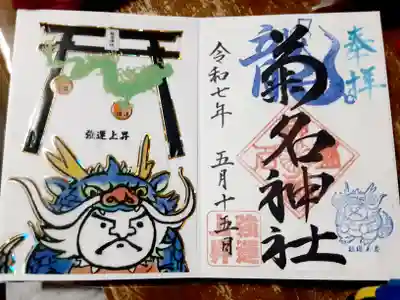 奉拝
龍
菊名神社
令和七年 五月十五日
強運上昇
強運上昇